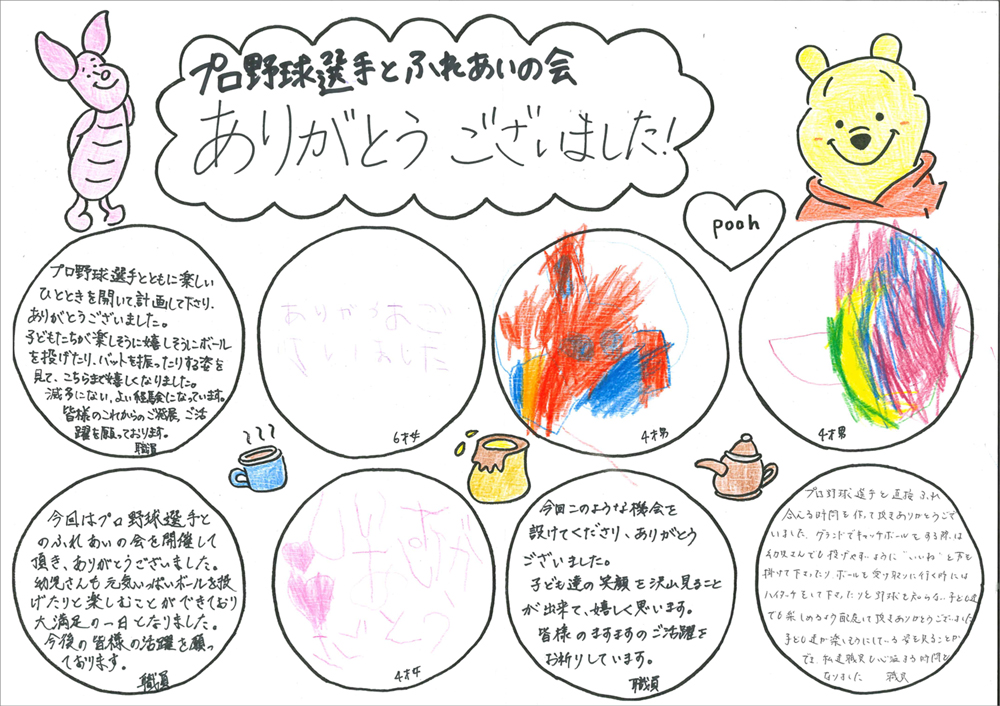 プロ野球選手とふれあいの会
ありがとうございました!
pooh
プロ野球選手とともに楽しい
ひとときを開いて計画して下さり、
ありがとうございました。
子どもたちが楽しそうに嬉しそうにボール
を投げたり、バットを振ったりする姿を
見て、こちらまで嬉しくなりました。
滅多にない、よい経験になっています。
皆様のこれからのご発展、ご活
躍を願っております。
職員
ありがとうご
ざいました
6才女
4才男
4才男
今回はプロ野球選手と
のふれあいの会を開催して
頂き、ありがとうございました。
幼児さんも元気いっぱいボールを投
げたりと楽しむことができており
大満足の一日となりました。
今後の皆様の活躍を願っ
ております。
職員
4才女
今回このような機会を
設けてくださり、ありがとう
ございました。
子ども達の笑顔を沢山見ること
が出来て、嬉しく思います。
皆様のますますのご活躍を
お祈りしています。
職員
プロ野球選手と直接ふれ
合える時間を作って頂きありがとうござ
いました。グランドでキャッチボールをする際は
幼児さんでも投げやすいように"いいね"と声を
掛けて下さったり ボールを受け取りに行く時には
ハイタッチをして下さったりと野球を知らない子ども達
でも楽しめるよう配慮して頂きありがとうございました
子ども達が楽しそうにしている姿を見ることが
でき、私達職員も心温まる時間と
なりました 職員